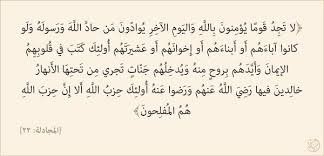 ﴿لا تَجِدُ قَومًا يُؤمِنونَ بِاللَّهِ وَاليَومِ الآخِرِ يُوادّونَ مَن حادَّ اللَّهَ وَرَسولَهُ وَلَو
كانوا آباءَهُم أَو أَبناءَهُم أَو إِخوانَهُم أَو عَشيرَتَهُم أُولئِكَ كَتَبَ في قُلوبِهِمُ
الإيمانَ وَأَيَّدَهُم بِروحٍ مِنهُ وَيُدخِلُهُم جَنّاتٍ تَجري مِن تَحتِهَا الأَنهارُ
خالِدينَ فيها رَضِيَ اللَّهُ عَنهُم وَرَضوا عَنهُ أُولئِكَ حِزبُ اللَّهِ أَلا إِنَّ حِزبَ اللَّهِ
هُمُ المُفلِحونَ﴾
[المجادلة: ٢٢]